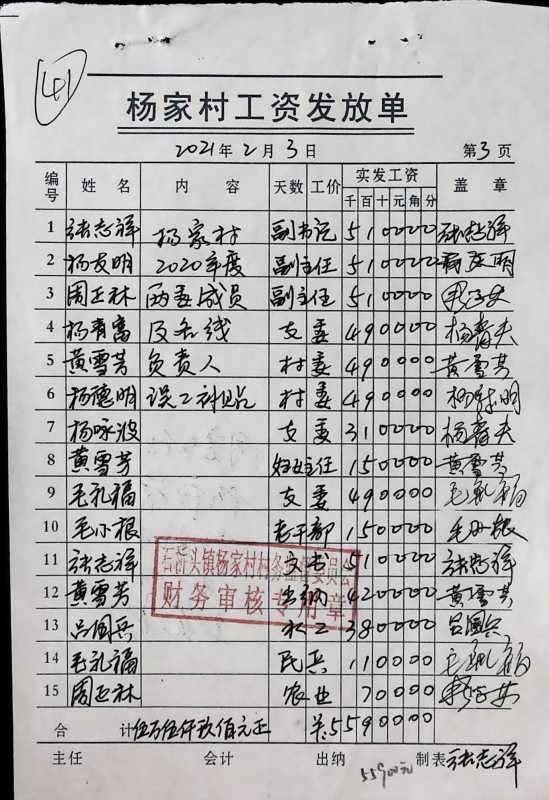 41
杨家村工资发放单
2021年2月3日 第3页
编号 姓名 内容 天数 工价 实发工资 盖章
千百十元角分
1 张志祥 杨家村 副书记 510000 张志祥
2 杨友明 2020年度 副主任 510000 杨友明
3 周正林 两委成员 副主任 510000
4 杨青富 及各线 支委 490000 杨青夫
5 黄雪芳 负责人 村委 490000 黄雪芳
6 杨德明 误工补贴 村委 490000 杨德明
7 杨咏波 支委 310000 杨青夫
8 黄雪芳 妇女主任 150000 黄雪芳
9 毛礼福 支委 490000 毛礼福
10 毛小根 老干部 150000 毛小根
11 张志祥 文书 510000 张志祥
12 黄雪芳 出纳 420000 黄雪芳
13 吕国兵 水工 380000 吕国兵
14 毛礼福 民兵 110000 毛礼福
15 周正林 农业 70000
石桥头镇杨家村村务监督委员会
财务审核专用章
合计 伍万伍仟玖佰元正 5590000
主任 会计 出纳 制表 张志祥
55900元